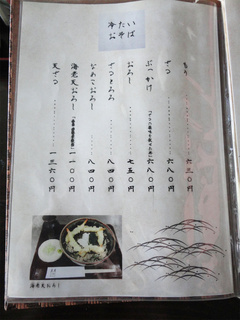 冷たい
そば
もり …… 六三〇円
ざる …… 六八〇円
ぶっかけ …… 六八〇円
おろし …… 七五〇円
ざるとろろ …… 八四〇円
なめこおろし …… 八四〇円
海老天おろし …… 一一〇〇円
天ざる …… 一三六〇円
海老天おろし